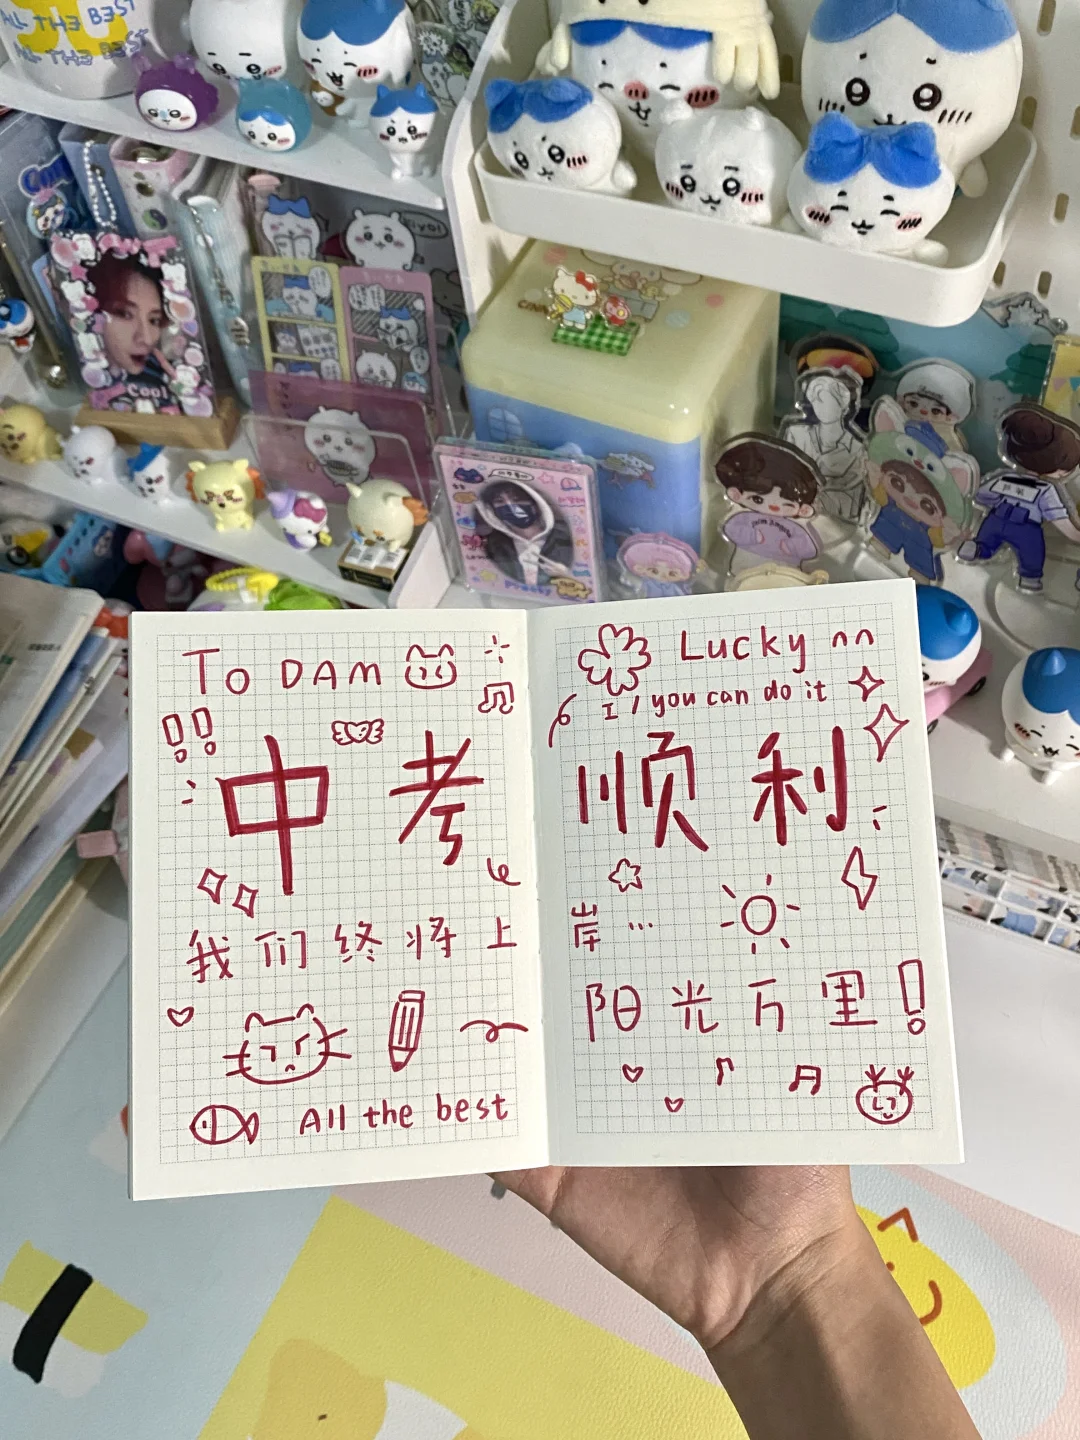 ALL THE BEST
ALL THE BEST
Cool
Pretty
To DAM
!! 中考
我们终将上
All the best
Lucky ^^
I / you can do it
顺利
岸…
阳光万里!